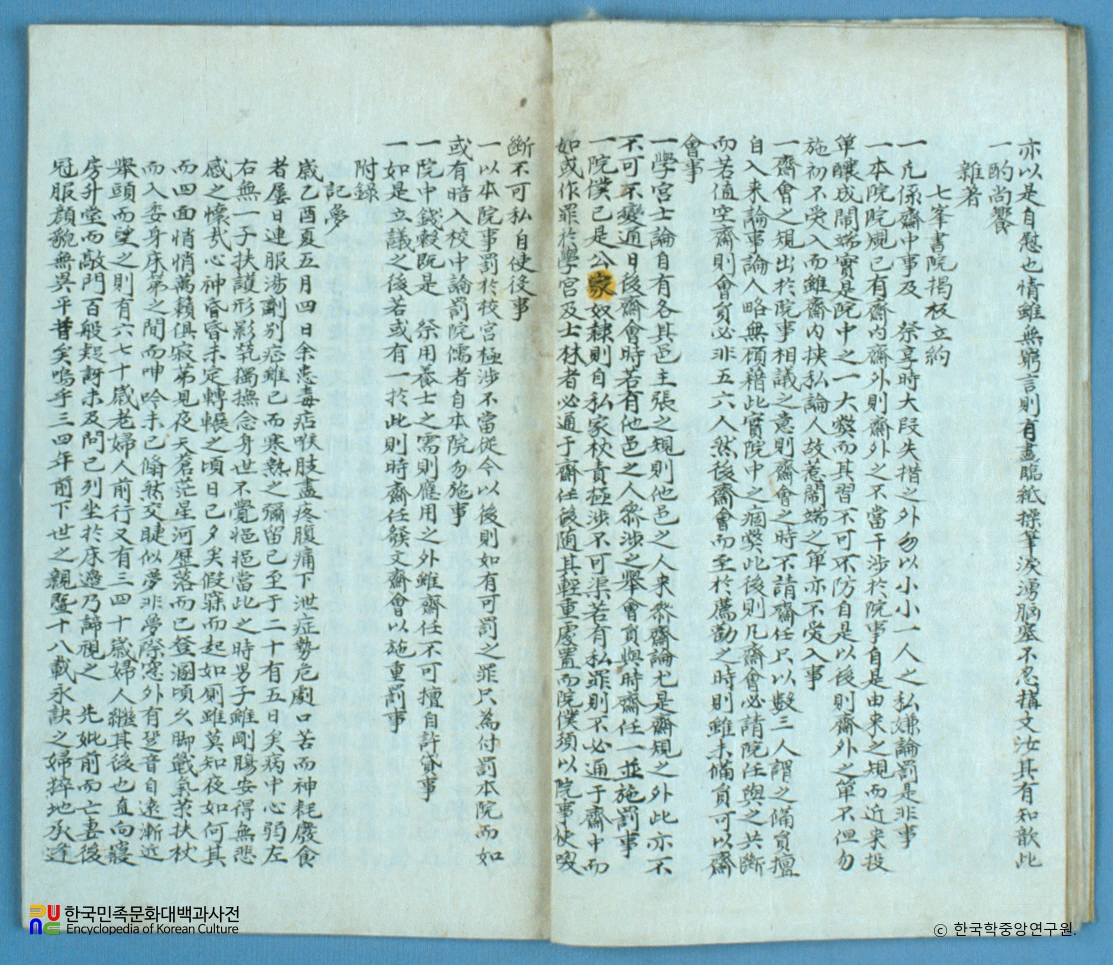 亦以是自慰也情雖無窮言則有盡臨紙操筆淚湧腦塞不忍構文汝其有知歆此
一酌尚饗
雜著
七峯書院揭板立約
一凡係齋中事及 祭享時大段失措之外勿以小小一人之私嫌論罰是非事
一本院院規已有齋內齋外則齋外之不當干涉於院事自是由來之規而近來投
單釀成鬧端實是院中之一大弊而其習不可不防自是以後則齋外之單不但勿
施初不受入而雖齋內挾私論人故惹鬧端之單亦不受入事
一齋會之規出於院事相議之意則齋會之時不請齋任只以數三人謂之備員擅
自入來論事論人略無顧藉此實院中之痼弊此後則凡齋會必請院任與之共斷
而若值空齋則會員必非五六人然後齋會而至於薦勸之時則雖未備員可以齋
會事
一學宮士論自有各其邑主張之規則他邑之人來參齋論尤是齋規之外此亦不
不可不變通日後齋會時若有他邑之人參涉之擧會員與時齋任一並施罰事
一院僕已是公家奴隷則自私家杖責極涉不可渠若有私罪則不必通于齋中而
如或作罪於學宮及士林者必通于齋任後隨其輕重處置而院僕須以院事使喚
斷不可私自使役事
一以本院事罰於校宮極涉不當從今以後則如有可罰之罪只為付罰本院而如
或有暗入校中論罰院儒者自本院勿施事
一院中錢穀既是 祭用養士之需則應用之外雖齋任不可擅自許貸事
一如是立議之後若或有一於此則時齋任發文齋會以施重罰事
附錄
記夢
歲乙酉夏五月四日余患毒痁喉肢盡疼腹痛下泄症勢危劇口苦而神耗廢食
者屢日連服湯劑別症雖已而寒熱之彌留已至于二十有五日矣病中心弱左
右無一子扶護形影煢獨撫念身世不覺悒悒當此之時男子雖剛腸安得無悲
感之懷哉心神昏昏未定轉輾之頃日已夕矣假寐而起如厠雖莫知夜如何其
而四面悄悄萬籟俱寂第見夜天蒼茫星河歷落而已登溷頃久脚戰氣茶扶杖
而入委身床第之間而呻吟未已翛然交睫似夢非夢際窓外有跫音自遠漸近
擧頭而望之則有六七十歲老婦人前行又有三四十歲婦人繼其後也直向寢
房升堂而敲門百般起訝未及問已列坐於床邊乃諦視之 先妣前而亡妻後
冠服顔貌無異平昔矣嗚乎三四年前下世之親曁十八載永訣之婦猝地承逢
한국민족문화대백과사전
Encyclopedia of Korean Culture
© 한국학중앙연구원.